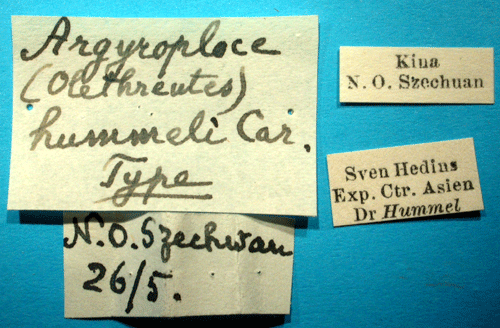 Argyroploce
(Olethreutes)
hummeli Car.
Type
N.O. Szechwan
26/5.
Kina
N. O. Szechuan
Sven Hedins
Exp. Ctr. Asien
Dr Hummel